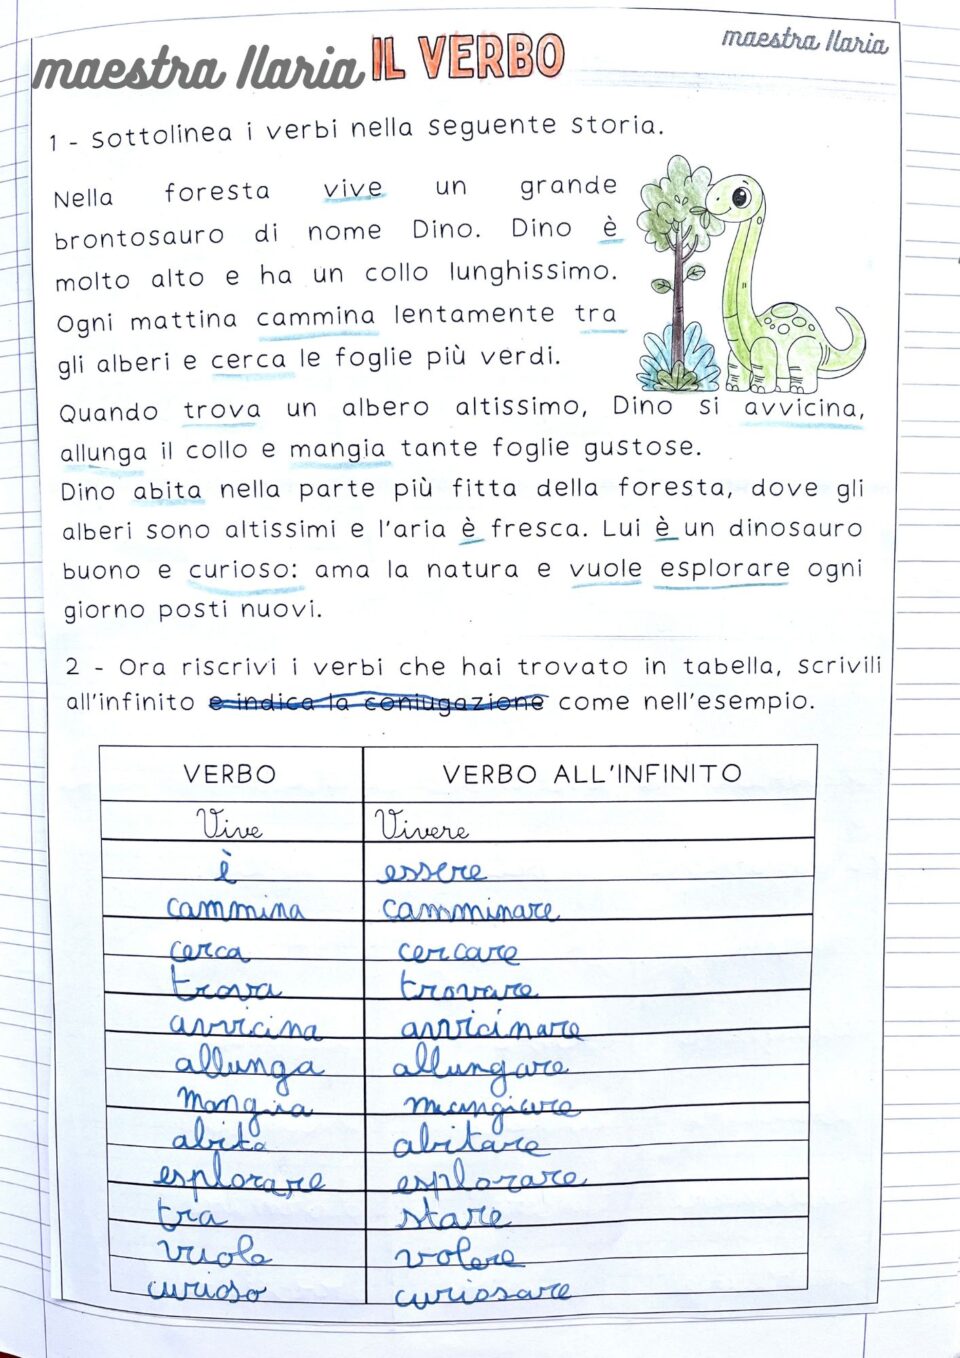 maestra Ilaria IL VERBO maestra Ilaria
1 - Sottolinea i verbi nella seguente storia.
Nella foresta vive un grande
brontosauro di nome Dino. Dino è
molto alto e ha un collo lunghissimo.
Ogni mattina cammina lentamente tra
gli alberi e cerca le foglie più verdi.
Quando trova un albero altissimo, Dino si avvicina,
allunga il collo e mangia tante foglie gustose.
Dino abita nella parte più fitta della foresta, dove gli
alberi sono altissimi e l'aria è fresca. Lui è un dinosauro
buono e curioso: ama la natura e vuole esplorare ogni
giorno posti nuovi.
2 - Ora riscrivi i verbi che hai trovato in tabella, scrivili
all'infinito e indica la coniugazione come nell'esempio.
VERBO VERBO ALL'INFINITO
Vive Vivere
è essere
cammina camminare
cerca cercare
trova trovare
avvicina avvicinare
allunga allungare
mangia mangiare
abita abitare
esplorare esplorare
tra stare
vuole volere
curioso curiosare